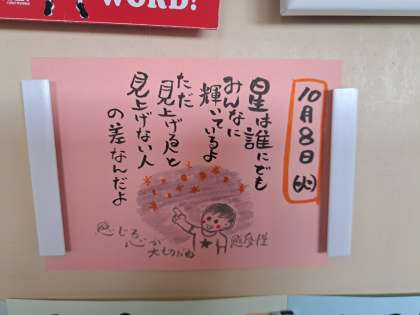 WORD!
10月8日(火)
星は誰にでも
みんなに
輝いているよ
ただ
見上げる人と
見上げない人
の差なんだよ
感じる
心が
大切だね
感受性